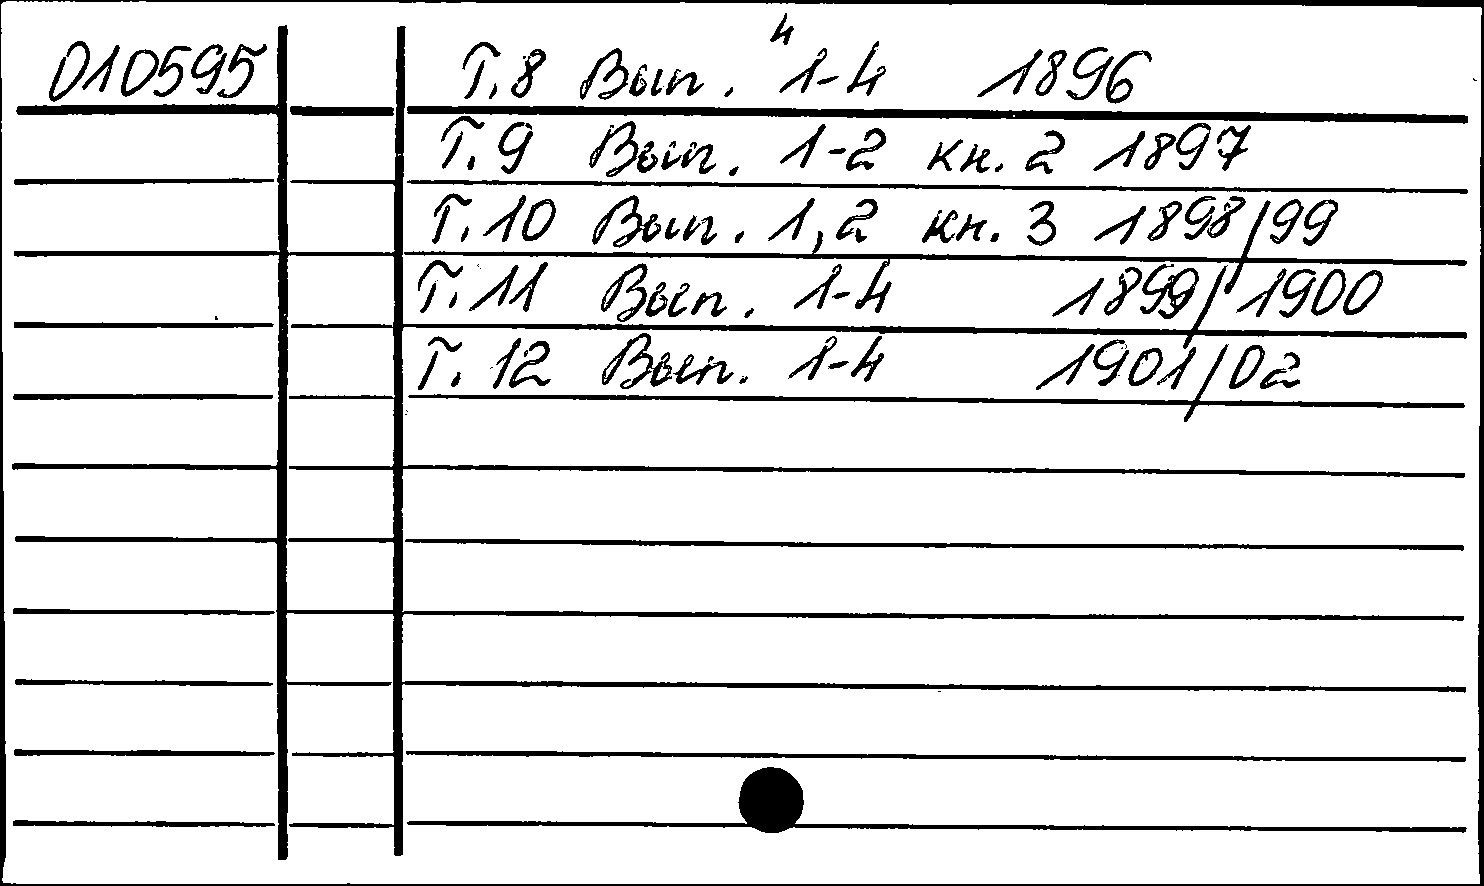 4
010595 Т.8 Вып. 1-4 1896
Т.9 Вып. 1-2 кн. 2 1897
Т.10 Вып. 1,2 кн. 3 1898/99
Т.11 Вып. 1-4 1899/1900
Т.12 Вып. 1-4 1901/02